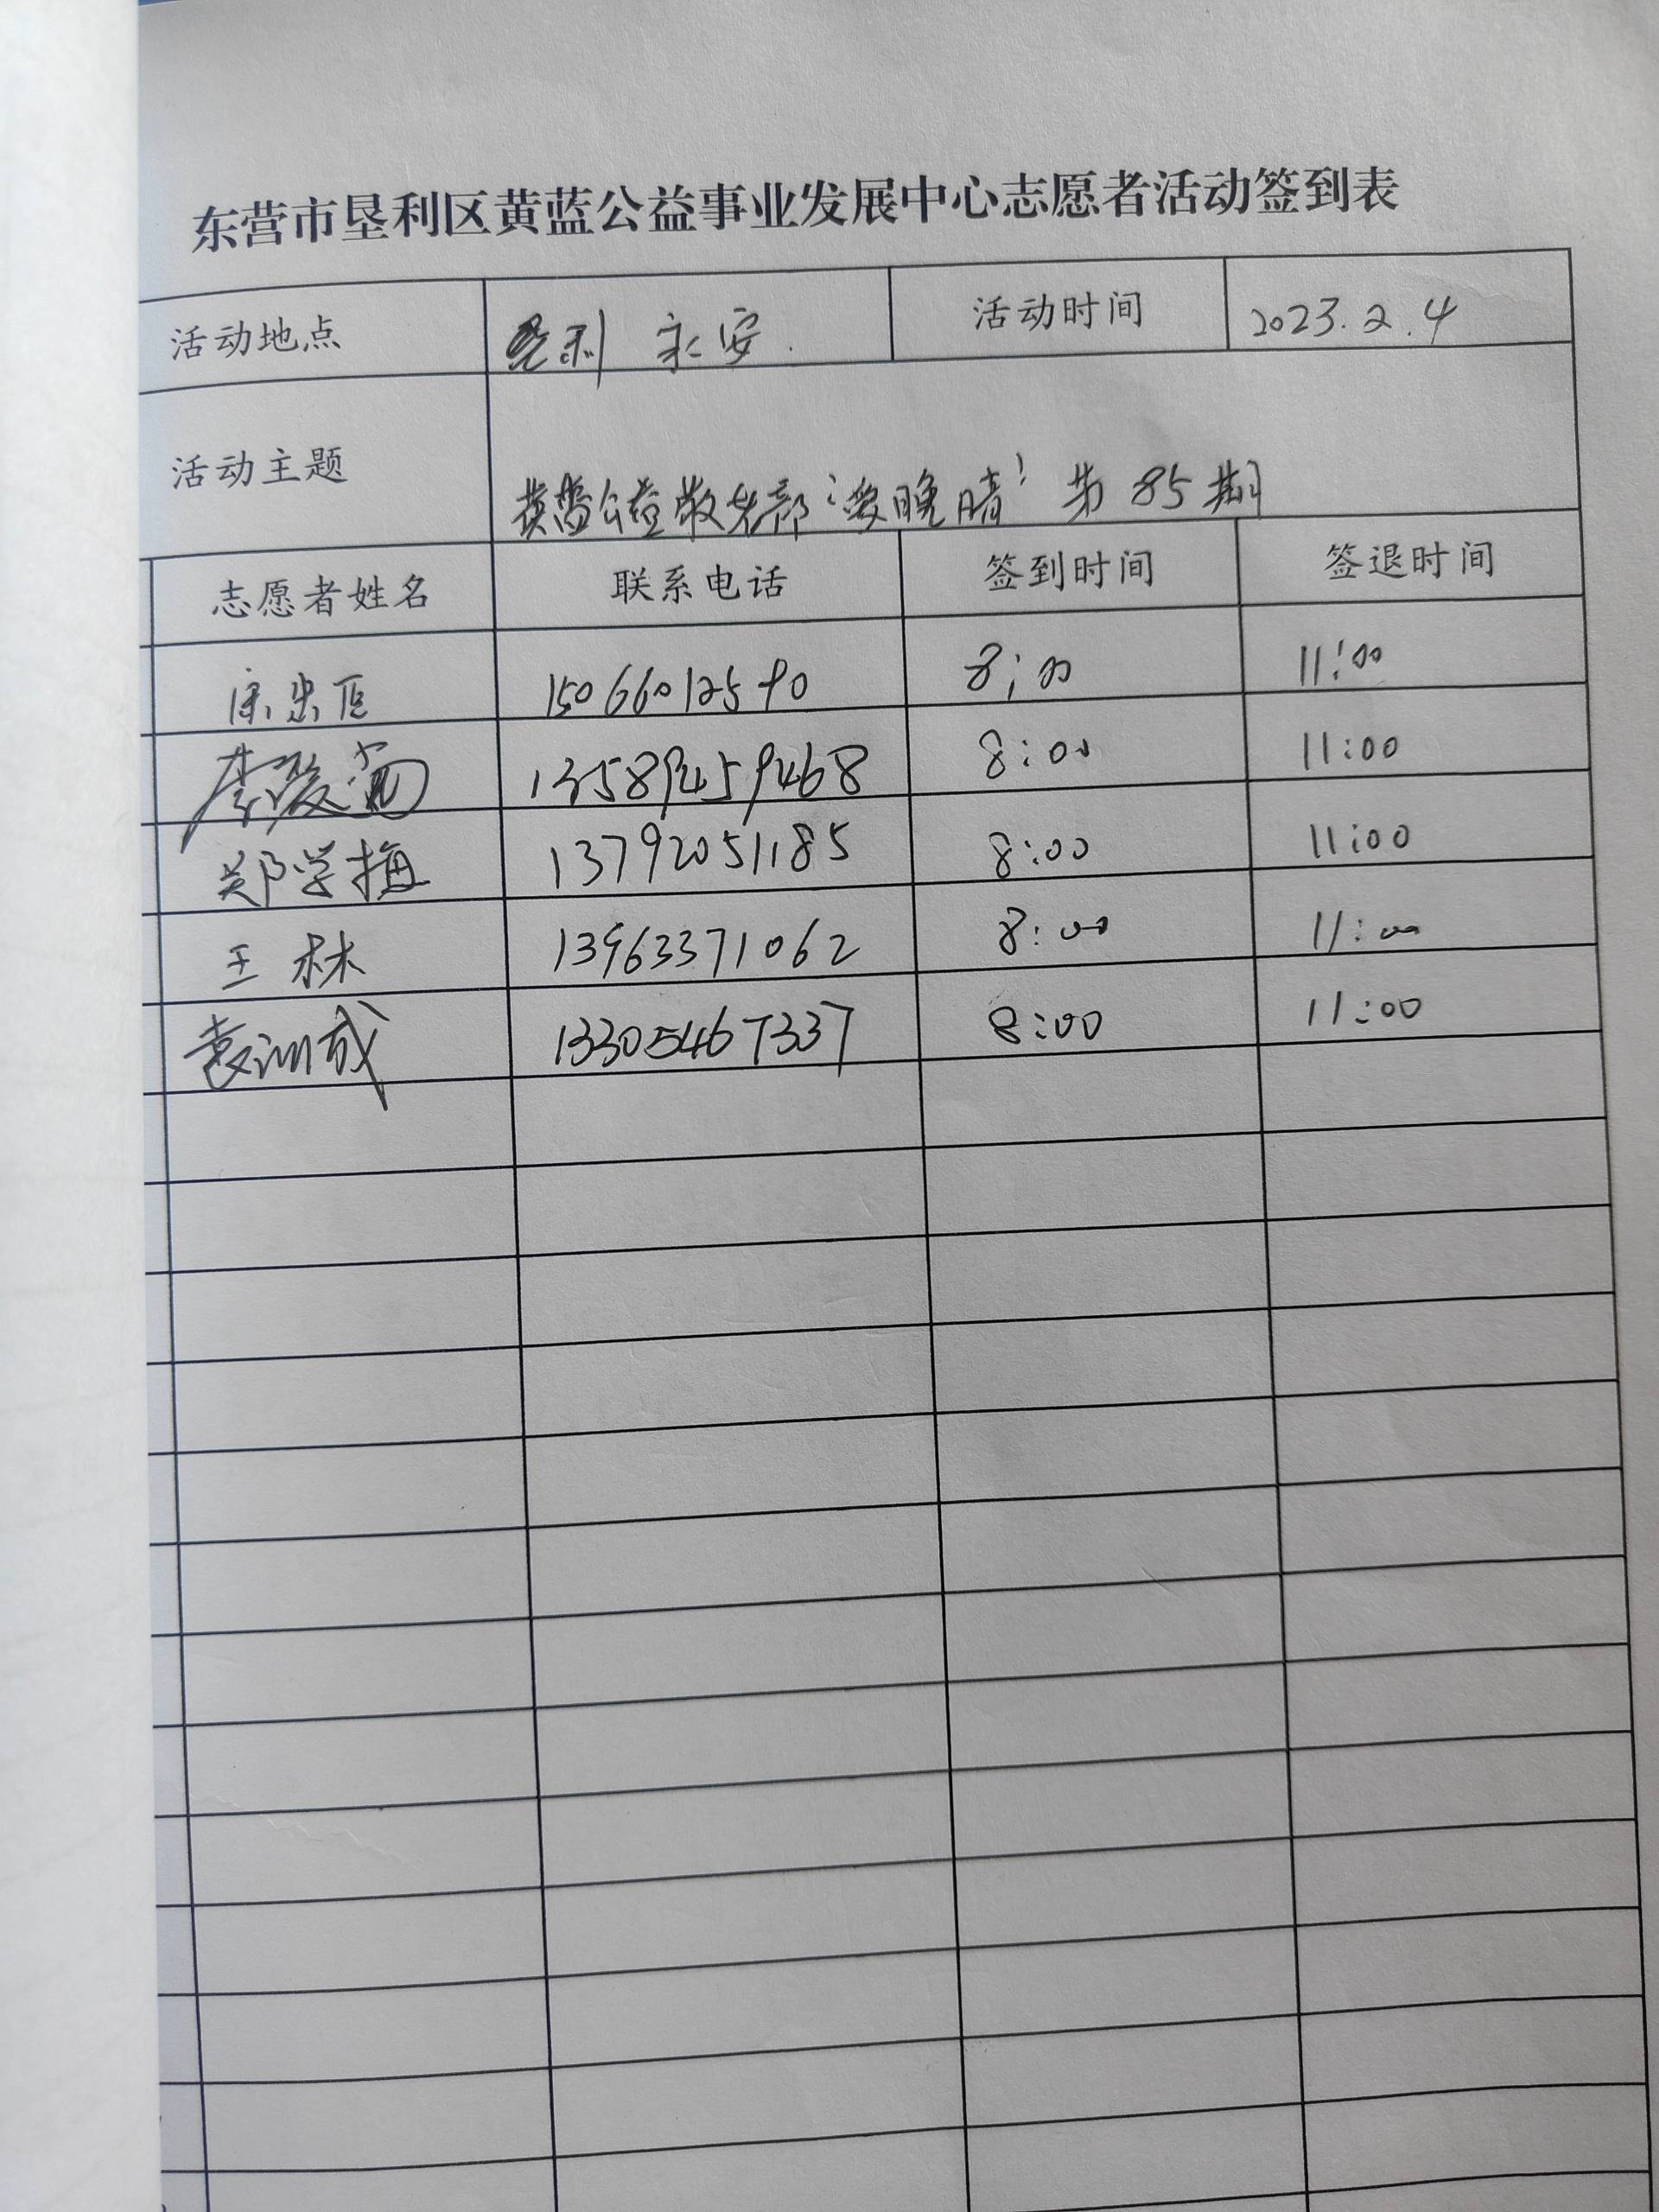 东营市垦利区黄蓝公益事业发展中心志愿者活动签到表
活动地点 垦利 永安 活动时间 2023.2.4
活动主题 黄蓝公益敬老部“爱晚晴” 第85期
志愿者姓名 联系电话 签到时间 签退时间
15066012590 8:00 11:00
李爱菊 13589459468 8:00 11:00
郑学梅 13792051185 8:00 11:00
王林 13963371062 8:00 11:00
袁训成 13305467337 8:00 11:00